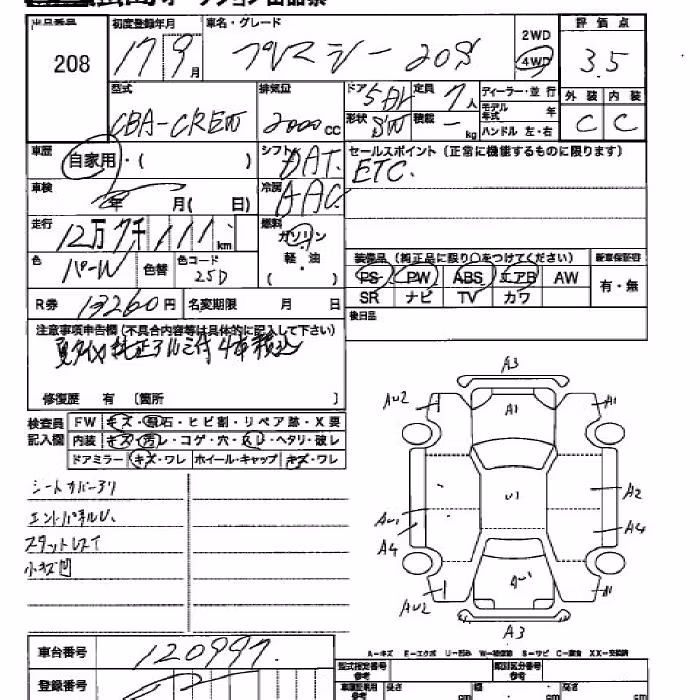 出品番号 初度登録年月 車名・グレード 2WD 評価点
208 17 9月 プレマシー 20S 4WD 3.5
型式 排気量 ドア 定員 ディーラー・並行 外装 内装
CBA-CREW 2000cc 5DR 7人 モデル年式 年 C C
形状 SW 積載 － kg ハンドル 左・右
車歴 自家用・( ) シフト DAT セールスポイント（正常に機能するものに限ります）
車検 年 月( 日) 冷房 AAC ETC.
走行 12万7千111km 燃料 ガソリン
色 パールW 色替 色コード 25D 軽・油 ( )
装備品（純正品に限り○をつけてください） 新車保証書
PS PW ABS エアB AW 有・無
SR ナビ TV カワ
R券 13260円 名変期限 月 日 後日品
注意事項申告欄(不具合内容等は具体的に記入して下さい)
夏タイヤ純正アルミ付
修復歴 有 〔箇所 〕
検査員記入欄 FW キズ・飛石・ヒビ割・リペア跡・X要
内装 キズ・汚レ・コゲ・穴・ヘタリ・破レ
ドアミラー キズ・ワレ ホイール・キャップ キズ・ワレ
シートカバーアリ
スタットレスイ
小キズ凹
A3
AU2 A1 A1
U1 A2
AU1
A4 A4
AU1
AU2
A3
車台番号 120997
A－キズ E－エクボ U－凹み W－補修跡 S－サビ C－腐食 XX－交換済
登録番号 型式指定番号 参考 類別区分番号 参考
長さ cm 幅 cm 高さ cm